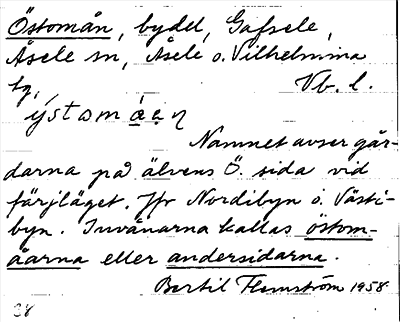 Östomån, bydel, Gafsele,
Åsele sn, Åsele o. Vilhelmina
tg, Vb. l.
ýstomá̤a̤ꞑ
Namnet avser går-
darna på älvens Ö. sida vid
färjläget. Jfr Nordibyn o. Västi-
byn. Invånarna kallas östom-
åarna eller andersidarna.
Bertil Flemström 1958